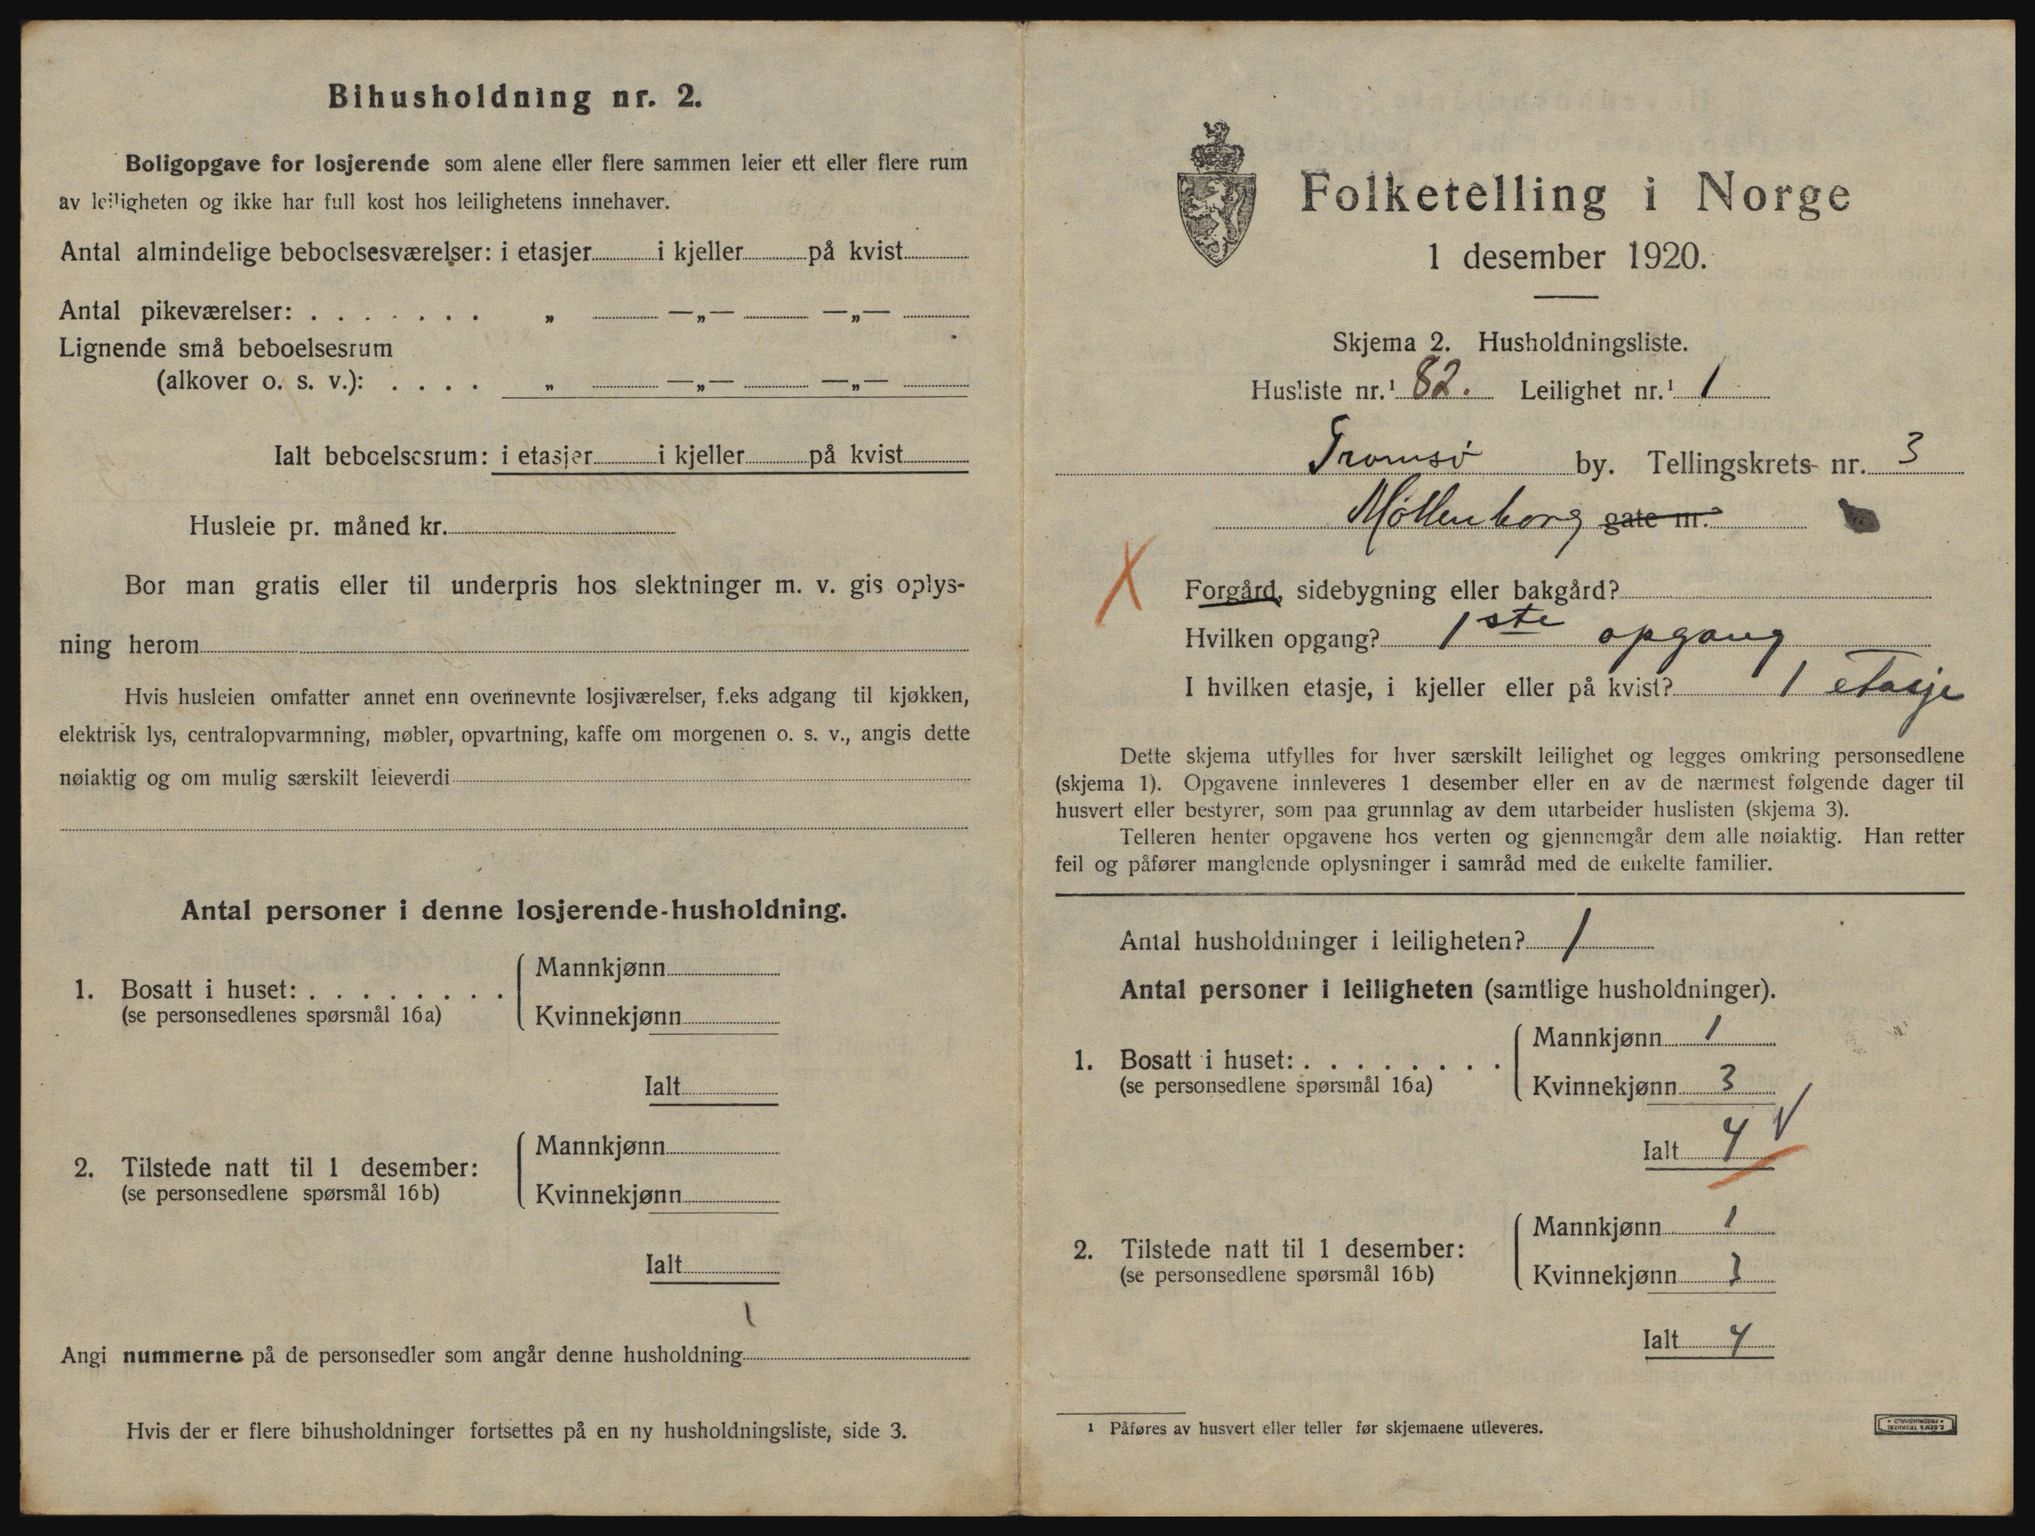 Bihusholdning nr. 2.
Boligopgave for losjerende som alene eller flere sammen leier ett eller flere rum
av leiligheten og ikke har full kost hos leilighetens innehaver.
Antal almindelige beboelsesværelser: i etasjer i kjeller på kvist
Antal pikeværelser: . . . . . . . „ —„— —„—
Lignende små beboelsesrum
(alkover o. s. v.): . . . . „ —„— —„—
Ialt beboelsesrum: i etasjer i kjeller på kvist
Husleie pr. måned kr.
Bor man gratis eller til underpris hos slektninger m. v. gis oplys-
ning herom
Hvis husleien omfatter annet enn ovennevnte losjiværelser, f.eks adgang til kjøkken,
elektrisk lys, centralopvarmning, møbler, opvartning, kaffe om morgenen o. s. v., angis dette
nøiaktig og om mulig særskilt leieverdi
Antal personer i denne losjerende-husholdning.
Mannkjønn
1. Bosatt i huset: . . . . . . . .
(se personsedlenes spørsmål 16a)
Kvinnekjønn
Ialt
Mannkjønn
2. Tilstede natt til 1 desember:
(se personsedlene spørsmål 16b)
Kvinnekjønn
Ialt
Angi nummerne på de personsedler som angår denne husholdning
Hvis der er flere bihusholdninger fortsettes på en ny husholdningsliste, side 3.
Folketelling i Norge
1 desember 1920.
Skjema 2. Husholdningsliste.
Husliste nr.¹ 82. Leilighet nr.¹ 1
Tromsø by. Tellingskrets nr. 3
Møllenborg gate nr.
Forgård, sidebygning eller bakgård?
Hvilken opgang? 1ste opgang
I hvilken etasje, i kjeller eller på kvist? 1 etasje
Dette skjema utfylles for hver særskilt leilighet og legges omkring personsedlene
(skjema 1). Opgavene innleveres 1 desember eller en av de nærmest følgende dager til
husvert eller bestyrer, som paa grunnlag av dem utarbeider huslisten (skjema 3).
Telleren henter opgavene hos verten og gjennemgår dem alle nøiaktig. Han retter
feil og påfører manglende oplysninger i samråd med de enkelte familier.
Antal husholdninger i leiligheten? 1
Antal personer i leiligheten (samtlige husholdninger).
Mannkjønn 1
1. Bosatt i huset: . . . . . . . .
(se personsedlene spørsmål 16a)
Kvinnekjønn 3
Ialt 4
Mannkjønn 1
2. Tilstede natt til 1 desember:
(se personsedlene spørsmål 16b)
Kvinnekjønn 3
Ialt 4
¹ Påføres av husvert eller teller før skjemaene utleveres.